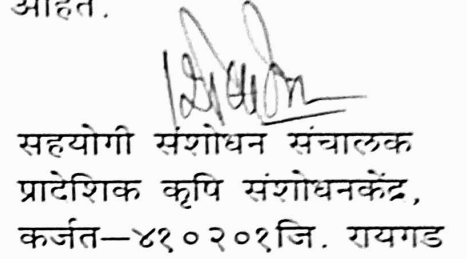 आहेत.
सहयोगी संशोधन संचालक
प्रादेशिक कृषि संशोधनकेंद्र,
कर्जत–४१०२०१जि. रायगड